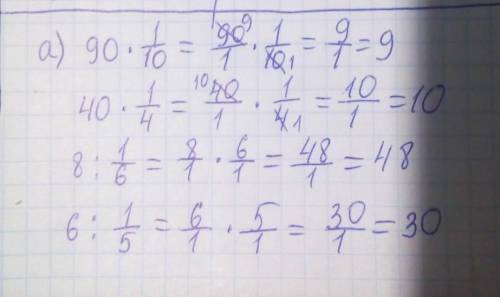 а) 90 · 1/10 = 90 9/1 · 1/10 1 = 9/1 = 9
40 · 1/4 = 10 40/1 · 1/4 1 = 10/1 = 10
8 : 1/6 = 8/1 · 6/1 = 48/1 = 48
6 : 1/5 = 6/1 · 5/1 = 30/1 = 30